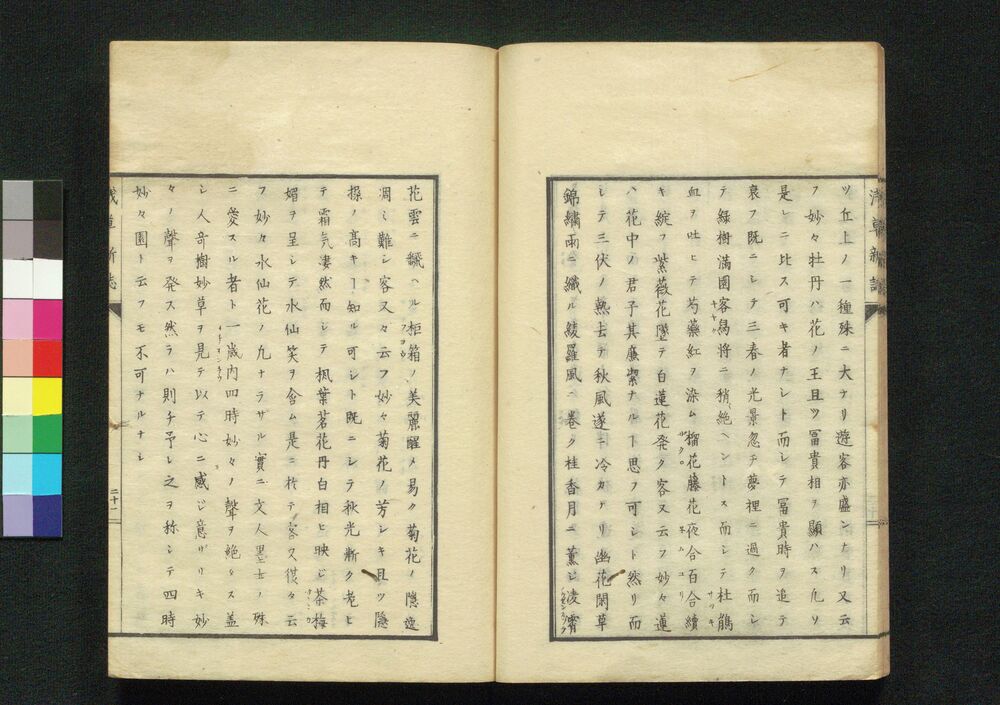 ツ丘上ノ一種殊ニ大ナリ遊客亦盛ンナリ又云
フ妙々牡丹ハ花ノ王且ツ冨貴相ヲ顯ハス凡ソ
是レニ比ス可キ者ナシト而シテ冨貴時ヲ追テ
衰フ既ニシテ三春ノ光景忽チ夢裡ニ過ク而シ
テ緑樹滿園客馬將ニ稍絶ヘントス而シテ杜鵑
血ヲ吐ヒテ芍藥紅ヲ染ム榴花藤花夜合百合續
キ綻フ紫薇花墜テ白蓮花発ク客又云フ妙々蓮
ハ花中ノ君子其廉潔ナルヿ思フ可シト然リ而
シテ三伏ノ熱去テ秋風遂ニ冷カナリ幽花閑草
錦繡雨ニ織ル綾羅風ニ巻ク桂香月ニ薫じ凌霄
花雲ニ飜ヘル柜箱ノ美麗醒メ易ク菊花ノ隠逸
凋ミ難シ客又々云フ妙々菊花ノ芳シキ且ツ隠
操ノ高キヿ知ル可シト既ニシテ秋光漸ク老ヒ
テ霜気凄然而シテ楓葉茗花丹白相ヒ映じ茶梅
媚ヲ呈シテ水仙笑ヲ含ム是ニ於テ客又復々云
フ妙々水仙花ノ凡ナラサル實ニ文人墨士ノ殊
ニ愛スル者ト一歳内四時妙々ノ聲ヲ絶タス盖
シ人奇樹妙草ヲ見テ以テ心ニ感じ意ザリキ妙
々ノ聲ヲ発ス然ラハ則チ予レ之ヲ称シテ四時
妙々園ト云フモ不可ナルナシ
二十一